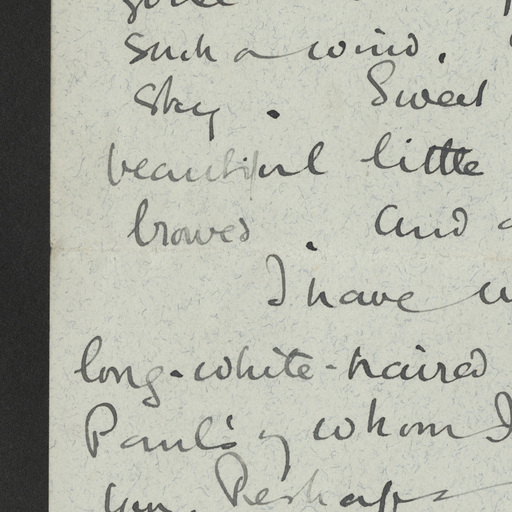 Such a wind.
Sky. Sweet
beautiful little
browed. And
I have
long-white-haired
Paul's of whom I
you. Perhaps